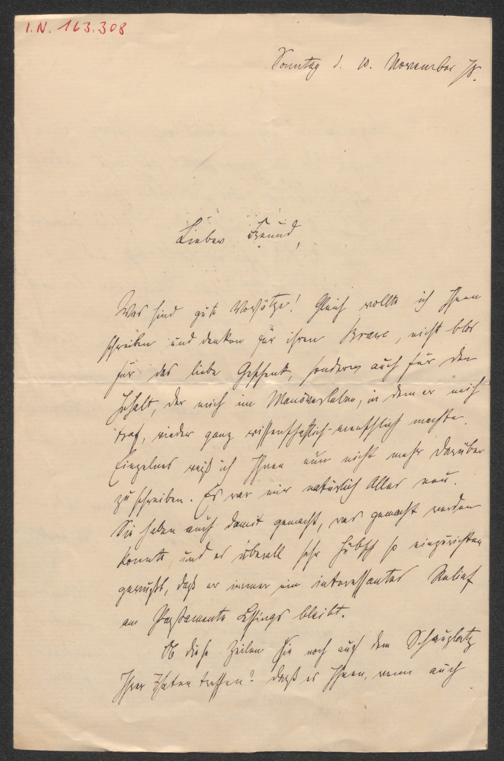 I.N. 163.308
Sonntag d. 10. November 78.
Lieber Freund,
Was sind gute Vorsätze! Gleich wollte ich Ihnen
schreiben und danken für ihren Brawe, nicht blos
für das liebe Geschenk, sondern auch für den
Inhalt, der mich im Manöverleben, in dem er mich
traf, wieder ganz wissenschaftlich-menschlich machte.
Einzelnes weiß ich Ihnen nun nicht mehr darüber
zu schreiben. Es war mir natürlich Alles neu.
Sie haben auch damit gemacht, was gemacht werden
konnte, und es überall sehr hübsch so einzurichten
gewußt, daß er immer ein interessantes Relief
am Postamente Lessings bleibt.
Ob diese Zeilen Sie noch auf dem Schauplatz
Ihrer Thaten treffen? Daß es Ihnen, wenn auch